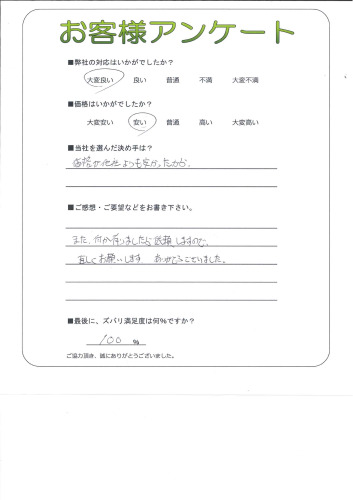 お客様アンケート
■弊社の対応はいかがでしたか？
大変良い 良い 普通 不満 大変不満
■価格はいかがでしたか？
大変安い 安い 普通 高い 大変高い
■当社を選んだ決め手は？
価格が他社よりも安かったから。
■ご感想・ご要望などをお書き下さい。
また、何か有りましたら依頼しますので、
宜しくお願いします ありがとうございました。
■最後に、ズバリ満足度は何％ですか？
100 %
ご協力頂き、誠にありがとうございました。